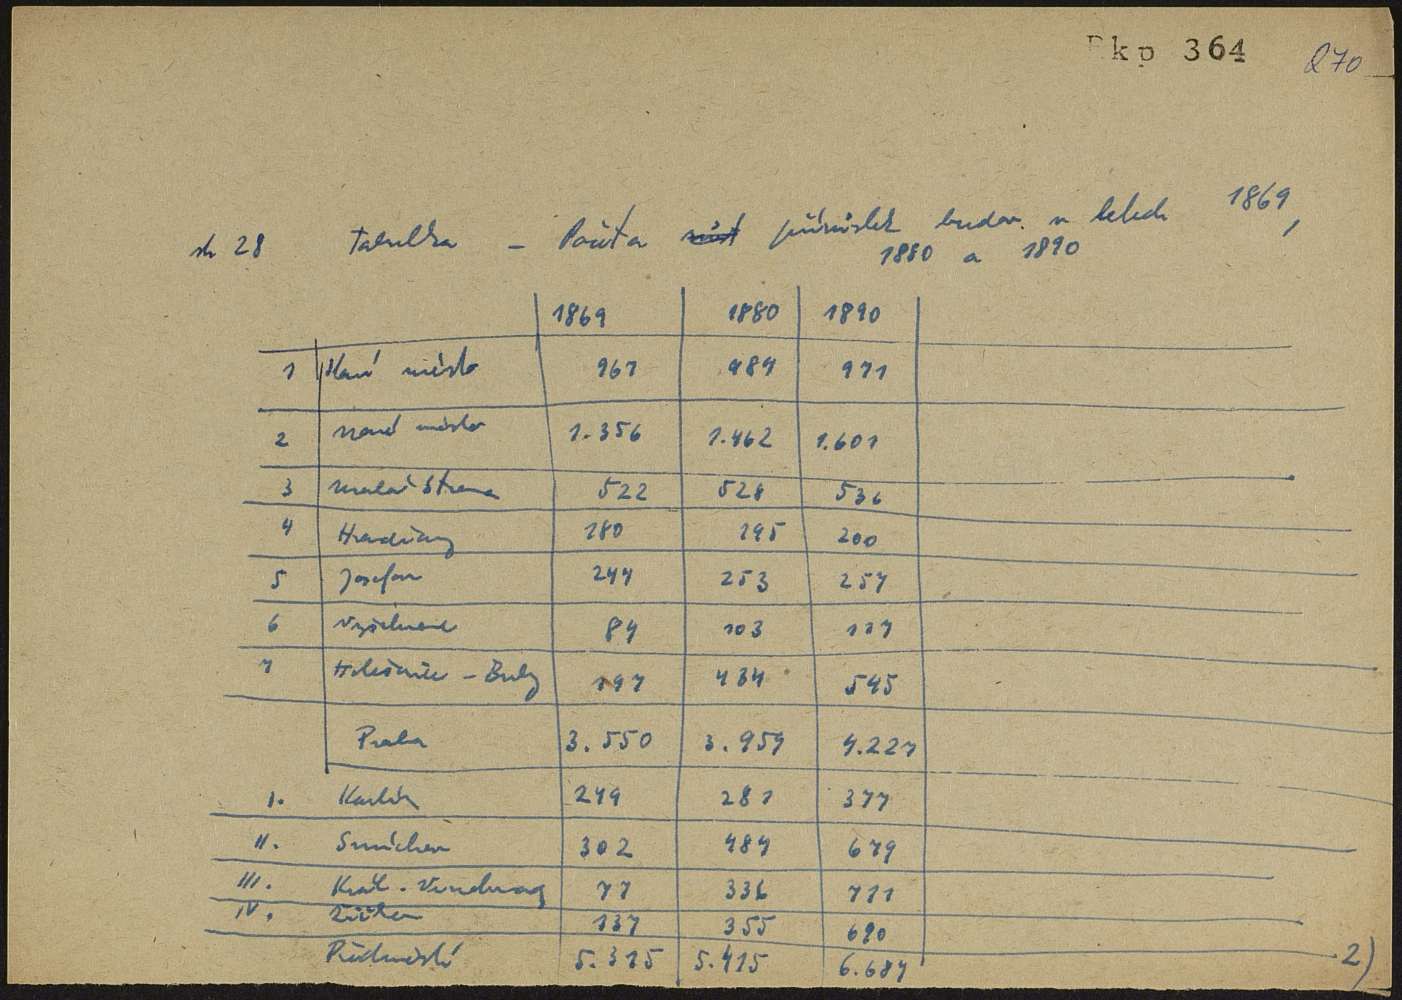 Rkp 364 270
str 28 Tabulka – Počítá míst přísíslek budov v letech 1869,
1880 a 1890
1869 1880 1890
1 Staré město 967 984 971
2 Nové město 1.356 1.462 1.601
3 Malá Strana 522 528 536
4 Hradčany 180 195 200
5 Josefov 244 253 257
6 Vyšehrad 84 103 117
7 Holešovice – Bubny 197 434 545
Praha 3.550 3.959 4.227
I. Karlín 249 281 377
II. Smíchov 302 484 679
III. Král. Vinohrady 77 336 711
IV. Žižkov 137 355 690
Předměstí 5.315 5.415 6.684
2)